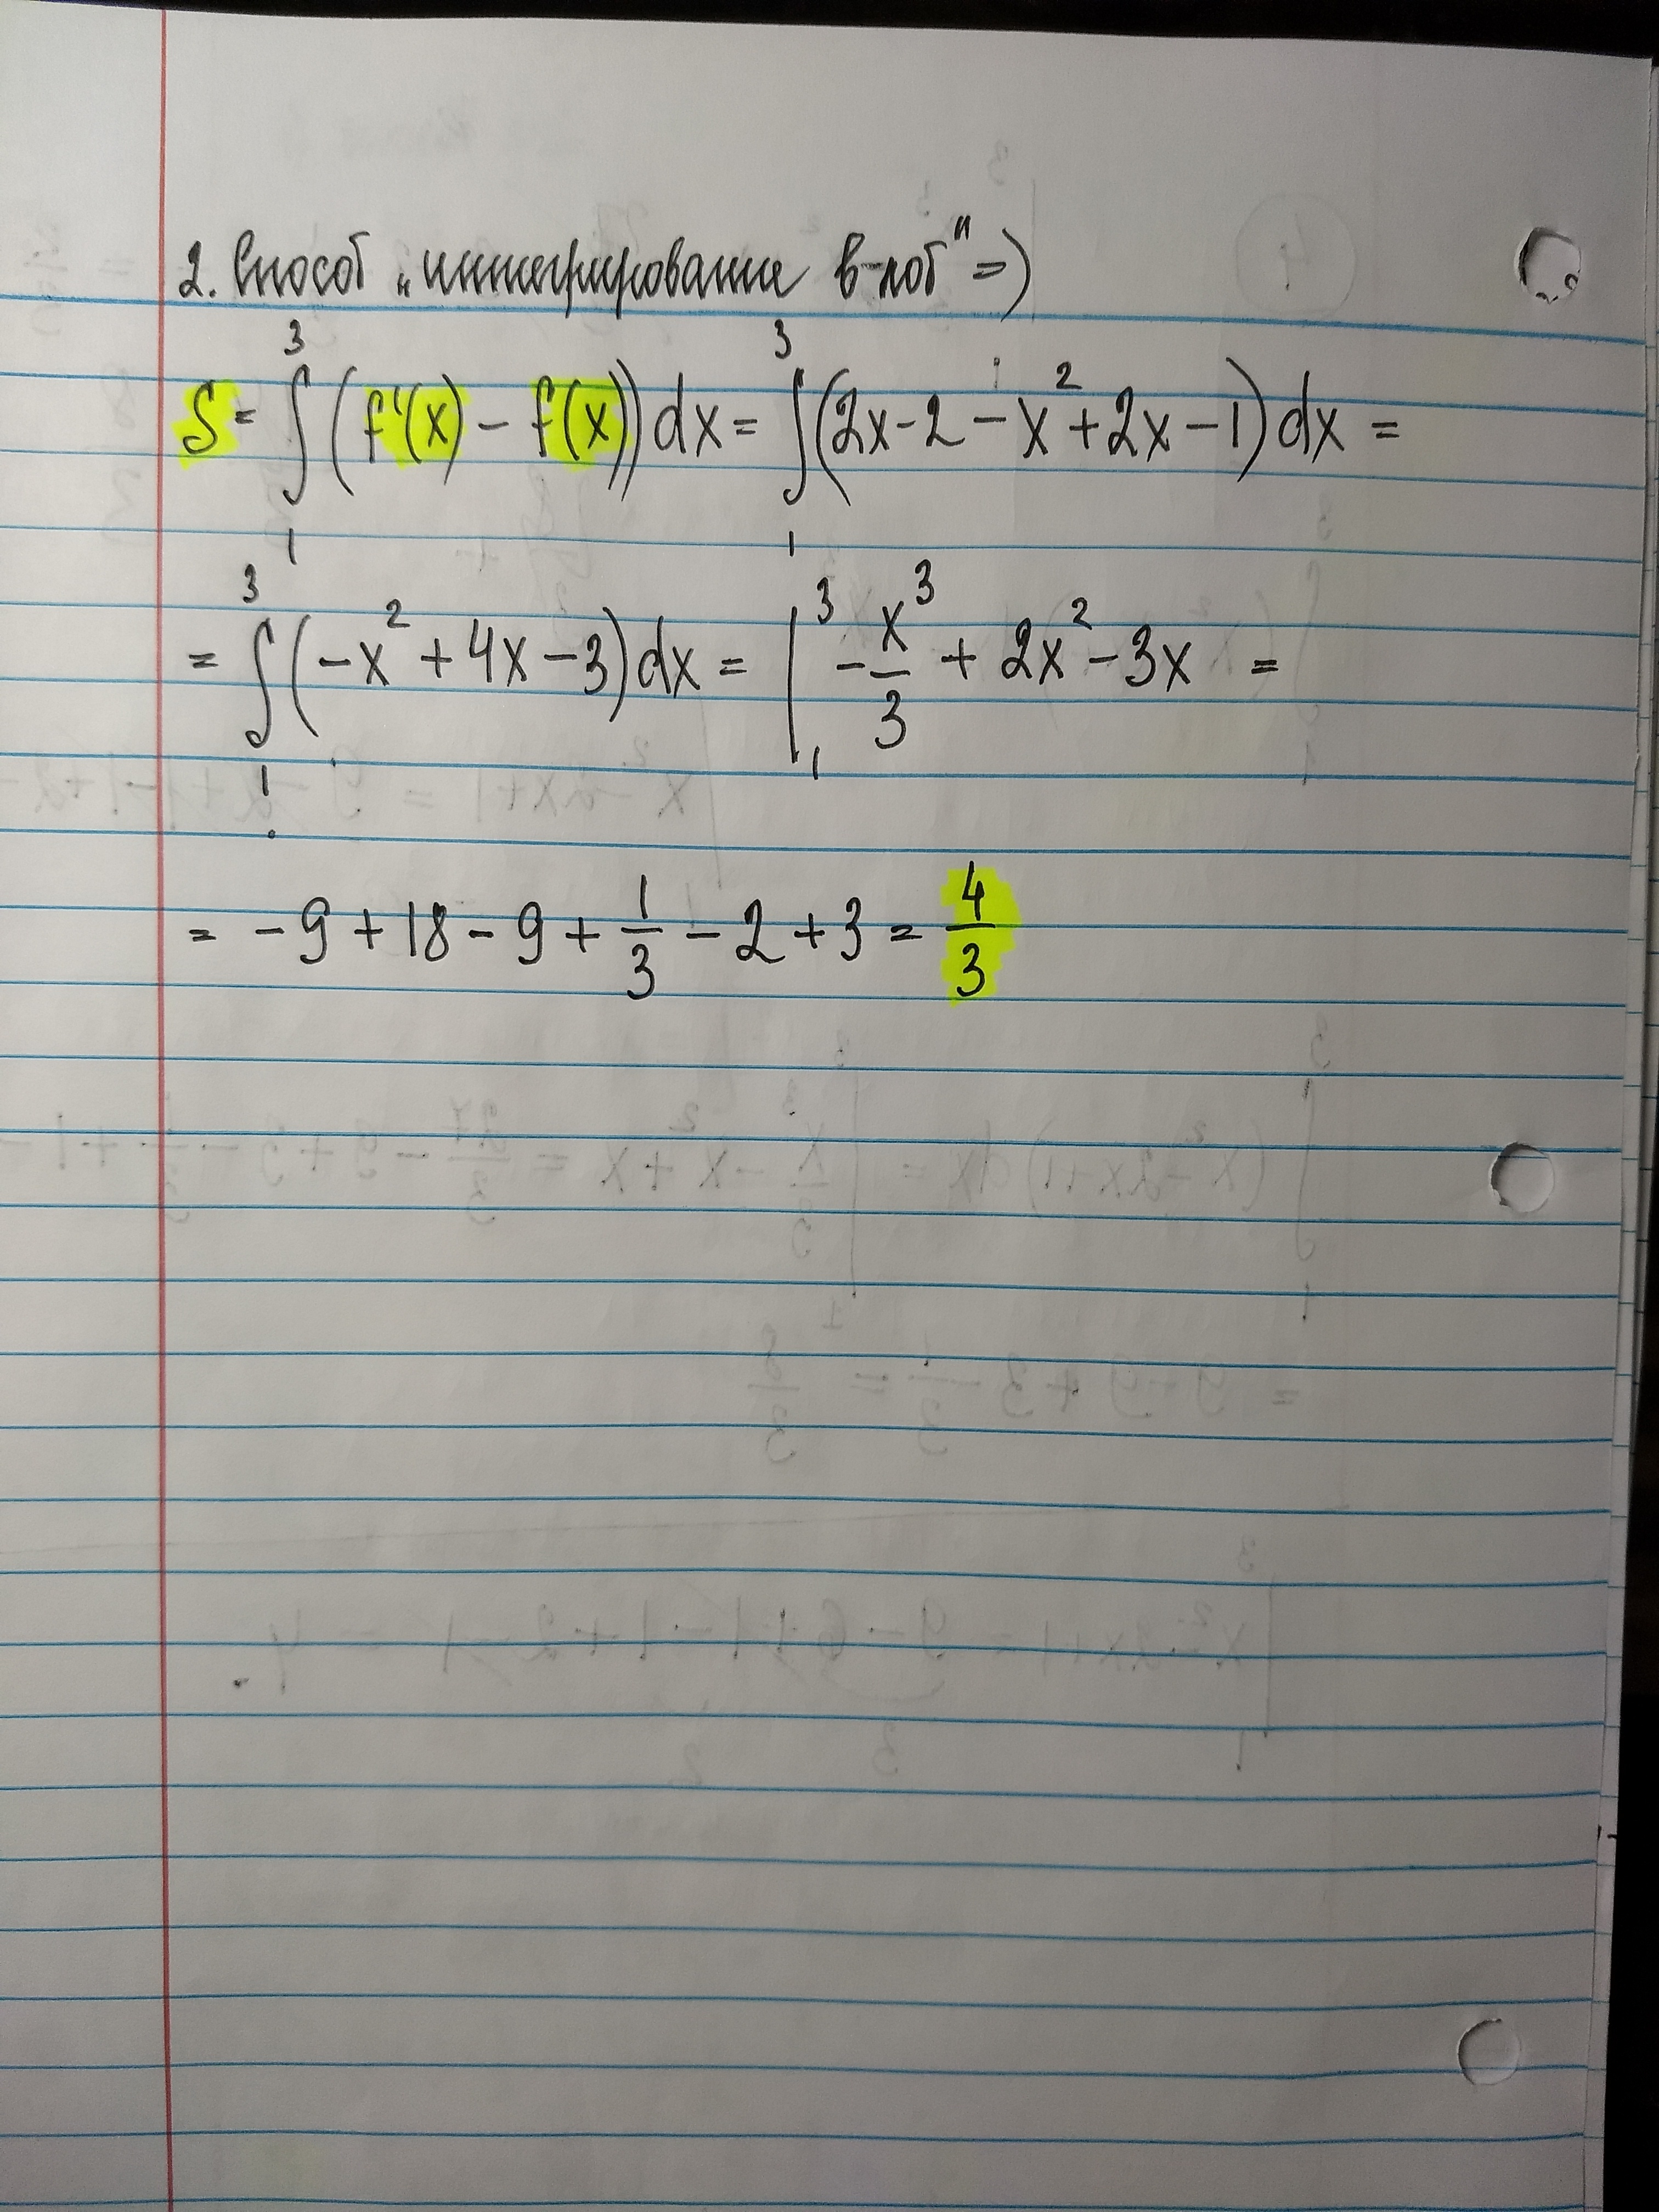 2. Способ „интегрирование в-лоб" =)
S = ∫₁³ (f'(x) - f(x)) dx = ∫₁³ (2x-2-x²+2x-1) dx =
= ∫₁³ (-x²+4x-3) dx = |₁³ -x³/3 + 2x² - 3x =
= -9+18-9+1/3-2+3 = 4/3